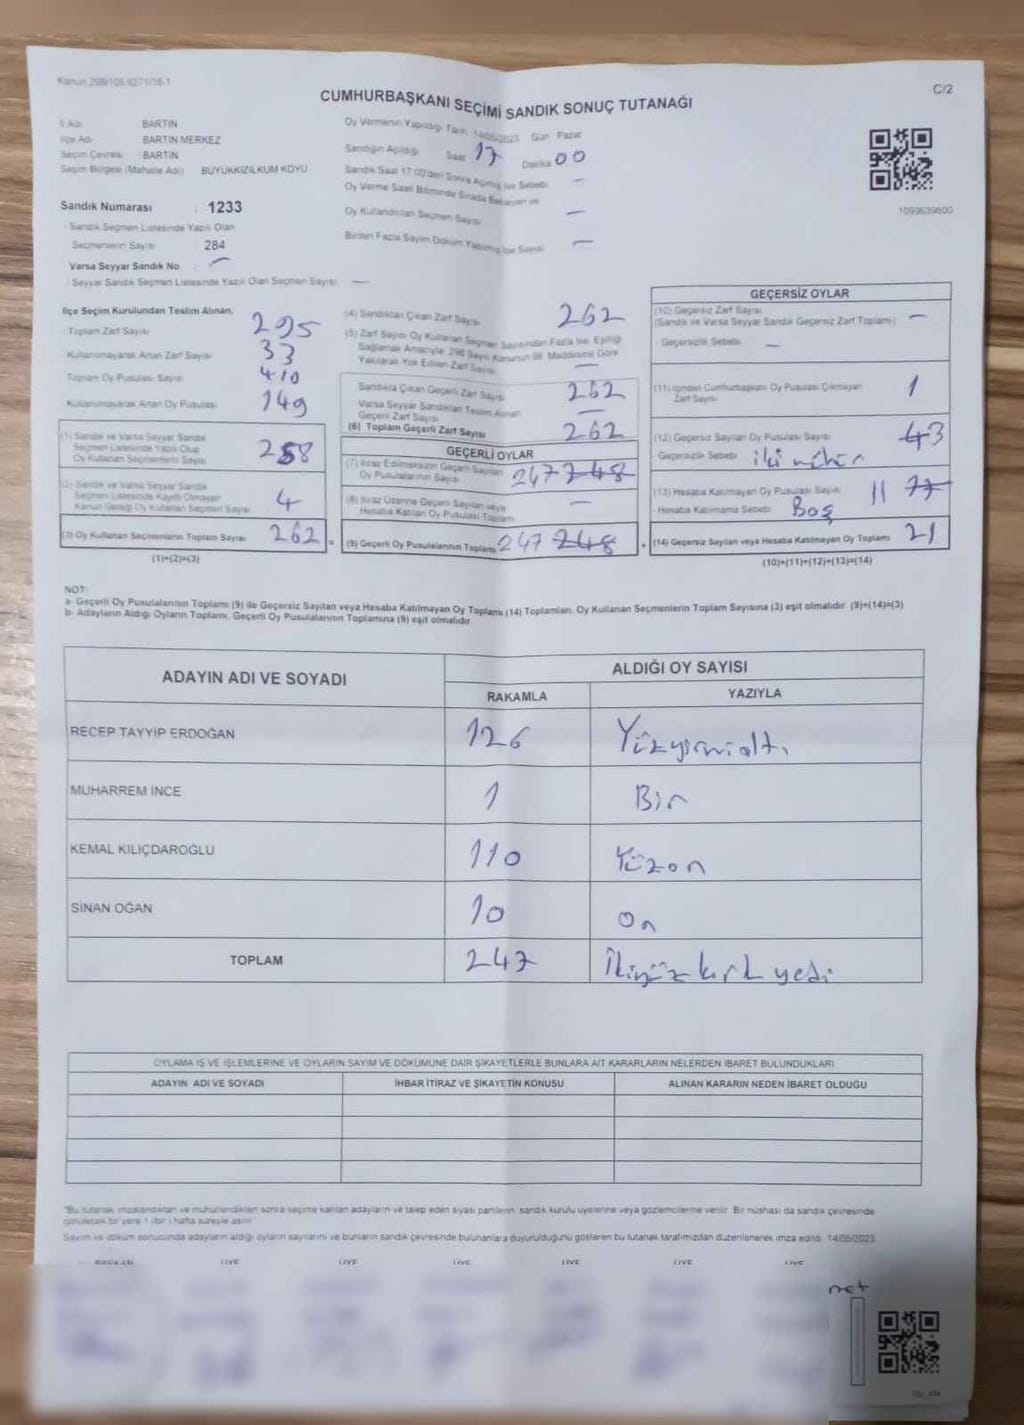 Kanun 298/105-6271/16-1
C/2
CUMHURBAŞKANI SEÇİMİ SANDIK SONUÇ TUTANAĞI
İl Adı BARTIN
İlçe Adı BARTIN MERKEZ
Seçim Çevresi BARTIN
Seçim Bölgesi (Mahalle Adı) BÜYÜKKIZILKUM KOYU
Sandık Numarası : 1233
- Sandık Seçmen Listesinde Yazılı Olan
Seçmenlerin Sayısı : 284
Varsa Seyyar Sandık No :
- Seyyar Sandık Seçmen Listesinde Yazılı Olan Seçmen Sayısı —
Oy Vermenin Yapıldığı Tarih 14/05/2023 Gün Pazar
Sandığın Açıldığı Saat 17 Dakika 00
Sandık Saat 17:00'den Sonra Açılmış İse Sebebi —
Oy Verme Saati Bitiminde Sırada Bekleyen ve
Oy Kullandırılan Seçmen Sayısı —
Birden Fazla Sayım Döküm Yapılmış İse Sayısı —
1093639600
İlçe Seçim Kurulundan Teslim Alınan;
- Toplam Zarf Sayısı 295
- Kullanılmayarak Artan Zarf Sayısı 33
Toplam Oy Pusulası Sayısı 410
- Kullanılmayarak Artan Oy Pusulası 149
(1) Sandık ve Varsa Seyyar Sandık
Seçmen Listesinde Yazılı Olup
Oy Kullanan Seçmenlerin Sayısı 258
(2) Sandık ve Varsa Seyyar Sandık
Seçmen Listesinde Kayıtlı Olmayan
Kanun Gereği Oy Kullanan Seçmen Sayısı 4
(3) Oy Kullanan Seçmenlerin Toplam Sayısı 262 =
(1)+(2)=(3)
(4) Sandıktan Çıkan Zarf Sayısı 262
(5) Zarf Sayısı Oy Kullanan Seçmen Sayısından Fazla İse, Eşitliği
Sağlamak Amacıyla; 298 Sayılı Kanunun 98. Maddesine Göre
Yakılarak Yok Edilen Zarf Sayısı —
Sandıkta Çıkan Geçerli Zarf Sayısı 262
Varsa Seyyar Sandıktan Teslim Alınan
Geçerli Zarf Sayısı —
(6) Toplam Geçerli Zarf Sayısı 262
GEÇERLİ OYLAR
(7) İtiraz Edilmeksizin Geçerli Sayılan
Oy Pusulalarının Sayısı 247 248
(8) İtiraz Üzerine Geçerli Sayılan veya
Hesaba Katılan Oy Pusulası Toplamı —
(9) Geçerli Oy Pusulalarının Toplamı 247 248 +
GEÇERSİZ OYLAR
(10) Geçersiz Zarf Sayısı
(Sandık ve Varsa Seyyar Sandık Geçersiz Zarf Toplamı) —
- Geçersizlik Sebebi —
(11) İçinden Cumhurbaşkanı Oy Pusulası Çıkmayan
Zarf Sayısı 1
(12) Geçersiz Sayılan Oy Pusulası Sayısı
Geçersizlik Sebebi iki mühür
(13) Hesaba Katılmayan Oy Pusulası Sayısı 11
- Hesaba Katılmama Sebebi Boş
(14) Geçersiz Sayılan veya Hesaba Katılmayan Oy Toplamı 21
(10)+(11)+(12)+(13)=(14)
NOT:
a- Geçerli Oy Pusulalarının Toplamı (9) ile Geçersiz Sayılan veya Hesaba Katılmayan Oy Toplamı (14) Toplamları, Oy Kullanan Seçmenlerin Toplam Sayısına (3) eşit olmalıdır. (9)+(14)=(3)
b- Adayların Aldığı Oyların Toplamı, Geçerli Oy Pusulalarının Toplamına (9) eşit olmalıdır.
ADAYIN ADI VE SOYADI ALDIĞI OY SAYISI
RAKAMLA YAZIYLA
RECEP TAYYİP ERDOĞAN 126 Yüzyirmialtı
MUHARREM İNCE 1 Bir
KEMAL KILIÇDAROĞLU 110 Yüzon
SİNAN OĞAN 10 On
TOPLAM 247 İkiyüzkırkyedi
OYLAMA İŞ VE İŞLEMLERİNE VE OYLARIN SAYIM VE DÖKÜMÜNE DAİR ŞİKAYETLERLE BUNLARA AİT KARARLARIN NELERDEN İBARET BULUNDUKLARI
ADAYIN ADI VE SOYADI İHBAR İTİRAZ VE ŞİKAYETİN KONUSU ALINAN KARARIN NEDEN İBARET OLDUĞU
"Bu tutanak imzalandıktan ve mühürlendikten sonra seçime katılan adayların ve talep eden siyasi partilerin sandık kurulu üyelerine veya gözlemcilerine verilir. Bir nüshası da sandık çevresinde
görülecek bir yere 1 (bir) hafta süreyle asılır
Sayım ve döküm sonucunda adayların aldığı oyların sayılarını ve bunların sandık çevresinde bulunanlara duyurulduğunu gösteren bu tutanak tarafımızdan düzenlenerek imza edildi. 14/05/2023
BAŞKAN ÜYE ÜYE ÜYE ÜYE ÜYE ÜYE